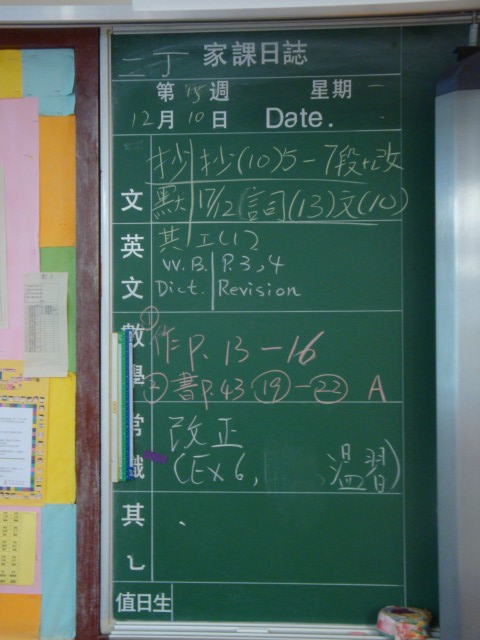 二丁 家課日誌
第15週 星期一
12月10日 Date.
抄 抄(10)5-7段+改
文 默 17/12 詞(13)文(10)
英 其 工(1)
文 W.B. P.3,4
Dict. Revision
數 ① 作 P. 13-16
學 ② 書 P.43 ⑲-㉒ A
常 改正
識 (Ex 6, 溫習)
其
值日生